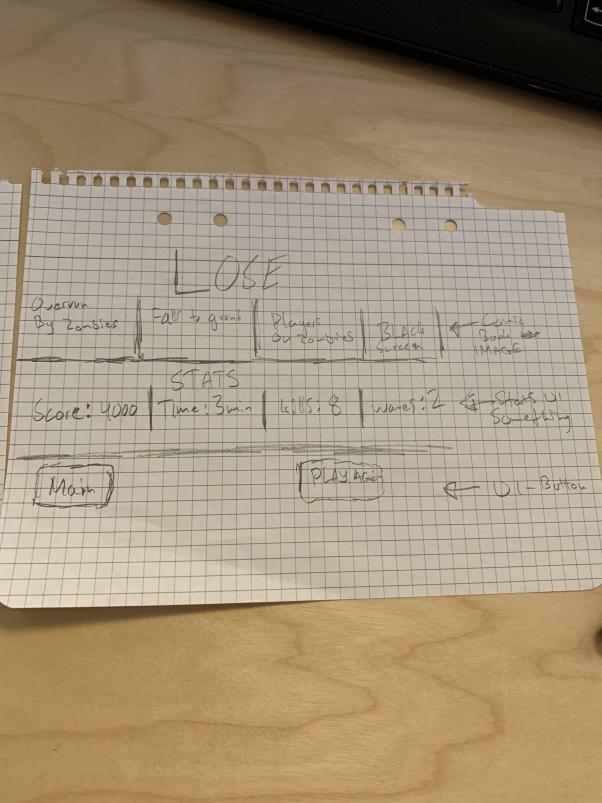 LOSE
Overrun
By Zombies
Falls to ground
Players
By Zombies
BLAck
Screen
Comic
Book
IMAGE
STATS
Score: 4000
Time: 3min
kills: 8
waves: 2
Stats UI
Something
Main
PLAY Again
UI-Button